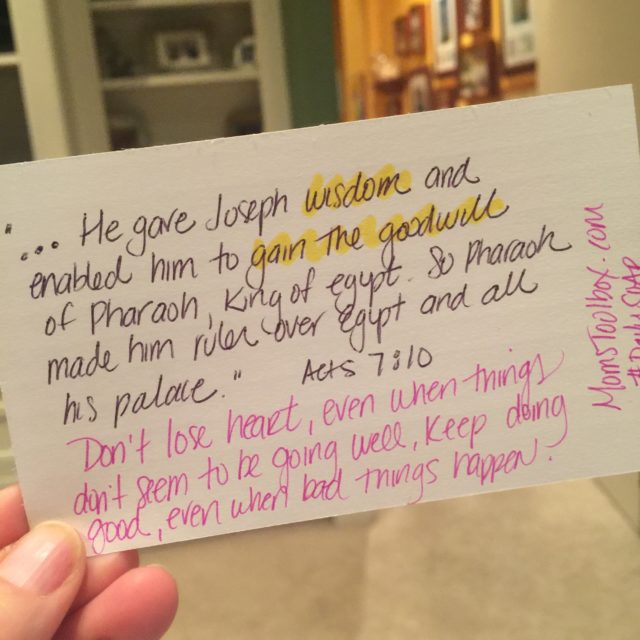 "... He gave Joseph wisdom and
enabled him to gain the goodwill
of Pharaoh, King of egypt. So Pharaoh
made him ruler over Egypt and all
his palace." Acts 7:10
Don't lose heart, even when things
don't seem to be going well, Keep doing
good, even when bad things happen.
MomsToolbox.com
#DailySOAP